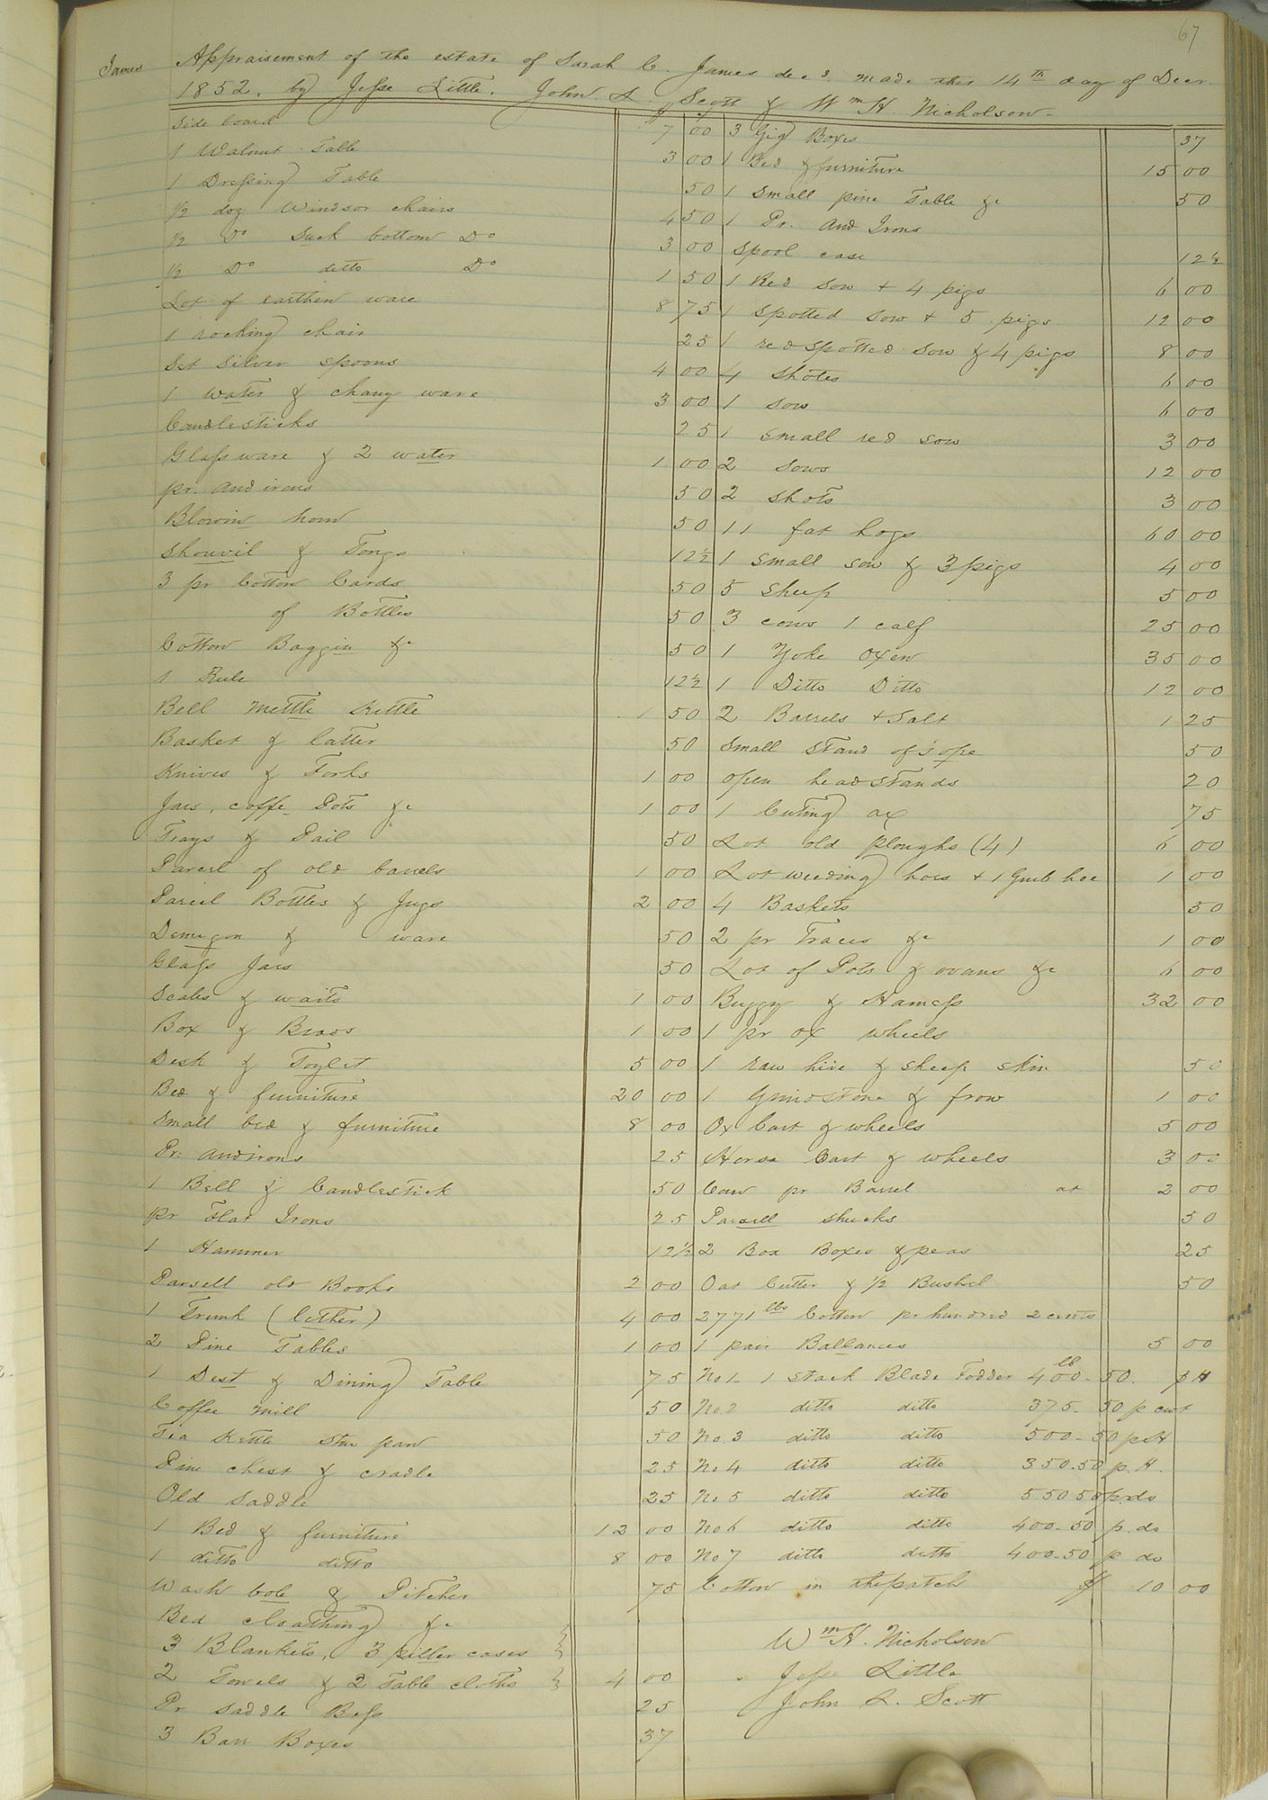 67
James
Appraisement of the estate of Sarah C. James decd. made this 14th day of Decr.
1852. by Jesse Little. John L. Scott & Wm H. Nicholson
Side board 7 00
1 Walnut Table 3 00
1 Dressing Table 50
1/2 doz Windsor chairs 4 50
1/2 Do Suck bottom Do 3 00
1/2 Do ditto Do 1 50
Lot of earthen ware 8 75
1 rocking chair 25
Set Silver spoons 4 00
1 water & chany ware 3 00
Candlesticks 25
Glass ware & 2 water 1 00
pr. andirons 50
Blowin horn 50
Shouvil & Tongs 12 1/2
3 pr Cotton Cards 50
of Bottles 50
Cotton Baggin &c 50
1 Rule 12 1/2
Bell Mettle Kettle 1 50
Basket & latter 50
Knives & Forks 1 00
Jars, coffe Pots &c 1 00
Trays & Pail 50
Parcel of old barrels 1 00
Parcel Bottles & Jugs 2 00
Demigon & ware 50
Glass Jars 50
Scales & waits 1 00
Box & Beaos 1 00
Desk & Toylet 5 00
Bed & furniture 20 00
Small bed & furniture 8 00
Pr. andirons 25
1 Bell & Candlestick 50
pr Flat Irons 25
1 Hammer 12 1/2
Parsell old Books 2 00
1 Trunk (lether) 4 00
2 Pine Tables 1 00
1 Dest & Dining Table 75
Coffee mill 50
Tea Kettle stu pan 50
Pine chest & cradle 25
Old Saddle 25
1 Bed & furniture 12 00
1 ditto ditto 8 00
Wash bole & Pitcher 75
Bed cloathing &c
3 Blankets, 3 piller cases
2 Towels & 2 Table cloths 4 00
Pr Saddle Bags 25
3 Ban Boxes 37
3 Gig Boxes 37
1 Bed & furniture 15 00
1 Small pine Table &c 50
1 Pr. And Irons
Spool case 12 1/2
1 Red Sow + 4 pigs 6 00
1 Spotted Sow + 5 pigs 12 00
1 red spotted Sow & 4 pigs 8 00
4 Shotes 6 00
1 Sow 6 00
1 Small red sow 3 00
2 Sows 12 00
2 Shots 3 00
11 fat hogs 60 00
1 Small sow & 3 pigs 4 00
5 Sheep 5 00
3 cows 1 calf 25 00
1 Yoke Oxen 35 00
1 Ditto Ditto 12 00
2 Barrels + Salt 1 25
Small Stand of sope 50
open head stands 20
1 Cuting ax 75
Lot old ploughs (4) 6 00
Lot weeding hoes + 1 Grub hoe 1 00
4 Baskets 50
2 pr Traces &c 1 00
Lot of Pots & ovans &c 6 00
Buggy & Harness 32 00
1 pr ox wheels
1 raw hide & sheep skin 50
1 Grindstone & frow 1 00
Ox Cart & wheels 5 00
Horse Cart & wheels 3 00
Corn pr Barrel at 2 00
Parsell shucks 50
2 Box Boxes & peas 25
Oat Cutter & 1/2 Bushel 50
2771 lbs Cotton pr hundred 2 cents
1 pair Ballances 5 00
No 1 1 Stack Blade Fodder 400 lb - 50. p H
No 2 ditto ditto 375 - 50 p cwt
No 3 ditto ditto 500 - 50 p H
No 4 ditto ditto 350 - 50 p. H.
No 5 ditto ditto 550 50 p do
No 6 ditto ditto 400 - 50 p. do
No 7 ditto ditto 400 - 50 p do
Cotton in the patch $ 10 00
Wm H. Nicholson
Jesse Little
John L. Scott